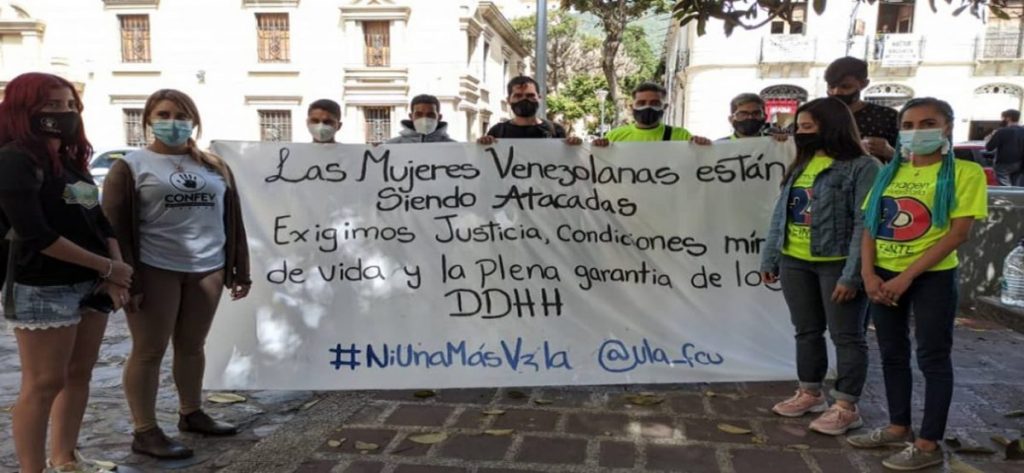 Las Mujeres Venezolanas están
Siendo Atacadas
Exigimos Justicia, condiciones
de vida y la plena garantia de
DDHH
#NiUnaMásVzla @ula_fcu
CONFEV